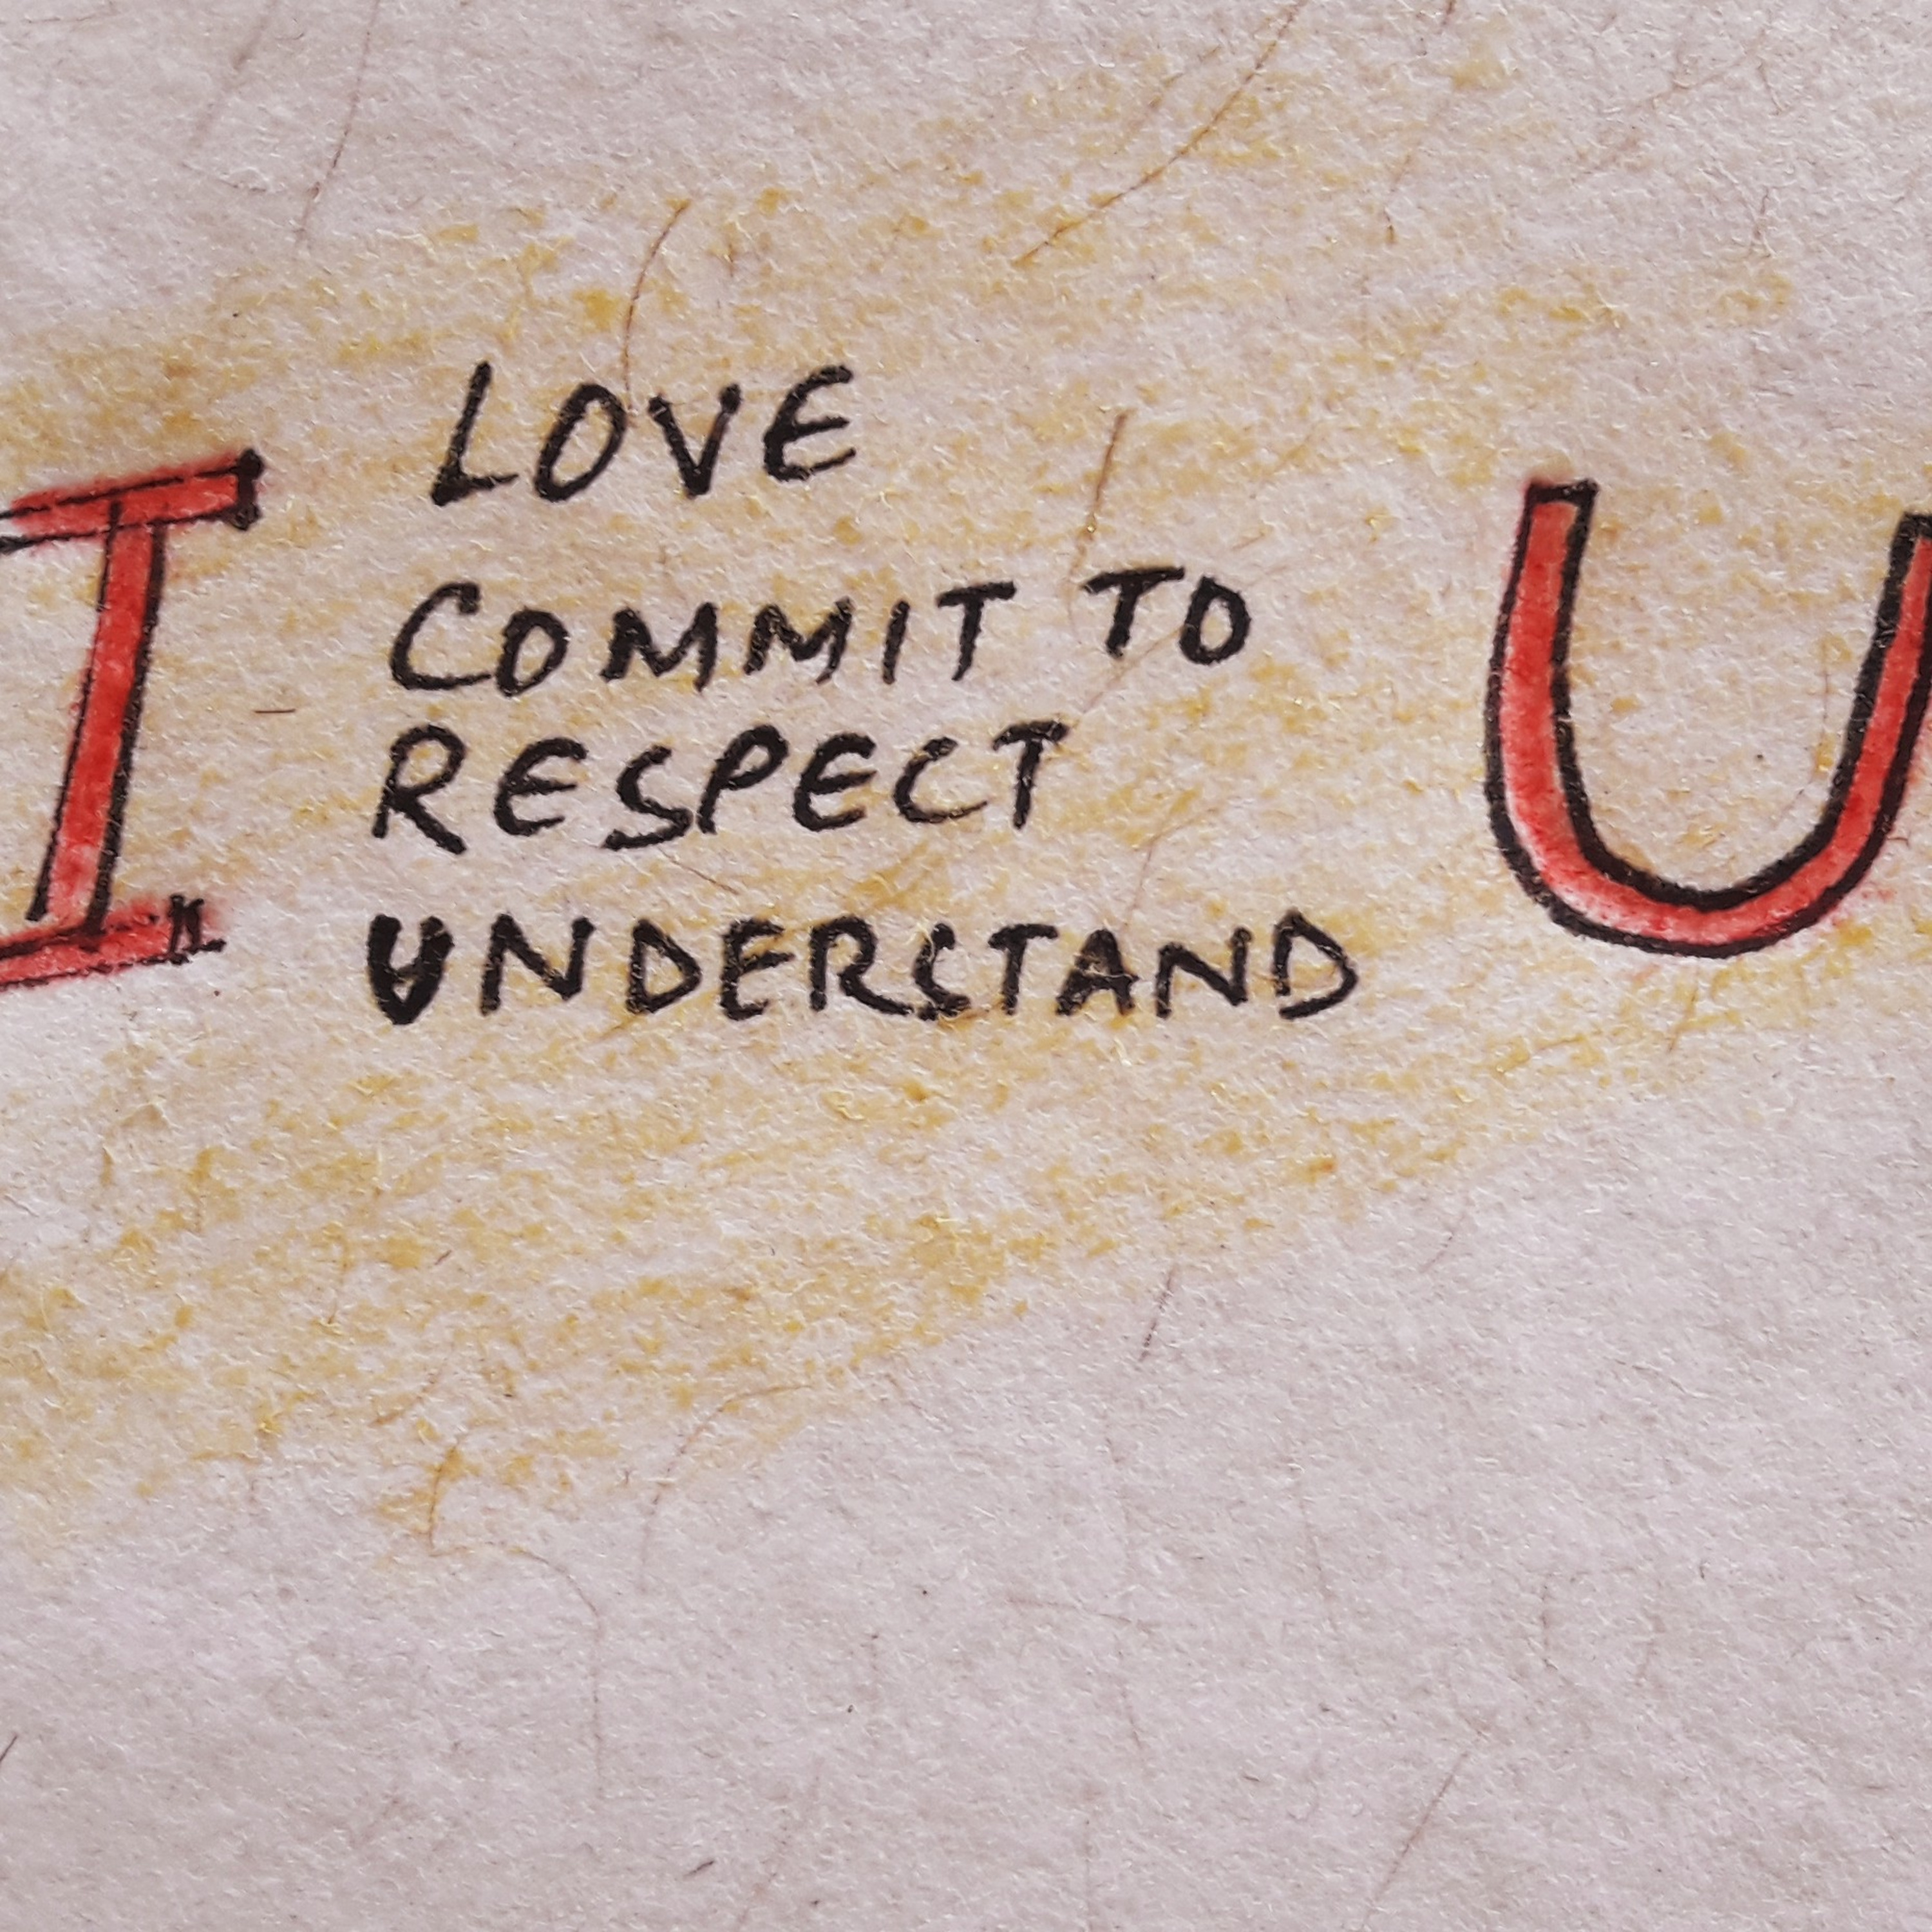 I
LOVE
COMMIT TO
RESPECT
UNDERSTAND
U